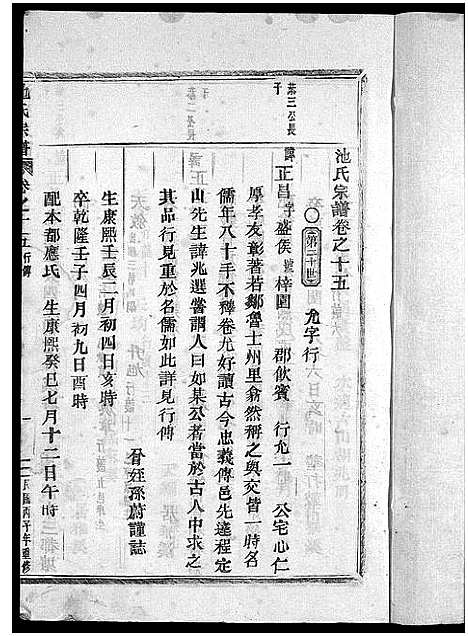 池氏宗譜卷之十五
第二十世 允字行
葉三公長子
諱正昌字盛侯號梓園 郡飲賓 行允一 公宅心仁
厚孝友彰著若鄒魯士州里翕然稱之與交皆一時名
儒年八十手不釋卷尤好讀古今忠義傳邑先達程定
山先生諱兆選嘗謂人曰如某公者當於古人中求之
其品行見重於名儒如此詳見行傳
胥姪孫蔚謹誌
生康熙壬辰二月初四日亥時
卒乾隆壬子四月初九日酉時
配本都應氏 生康熙癸巳七月十二日午時
池氏宗譜 卷之十五 行傳 一
民國丙子年重修